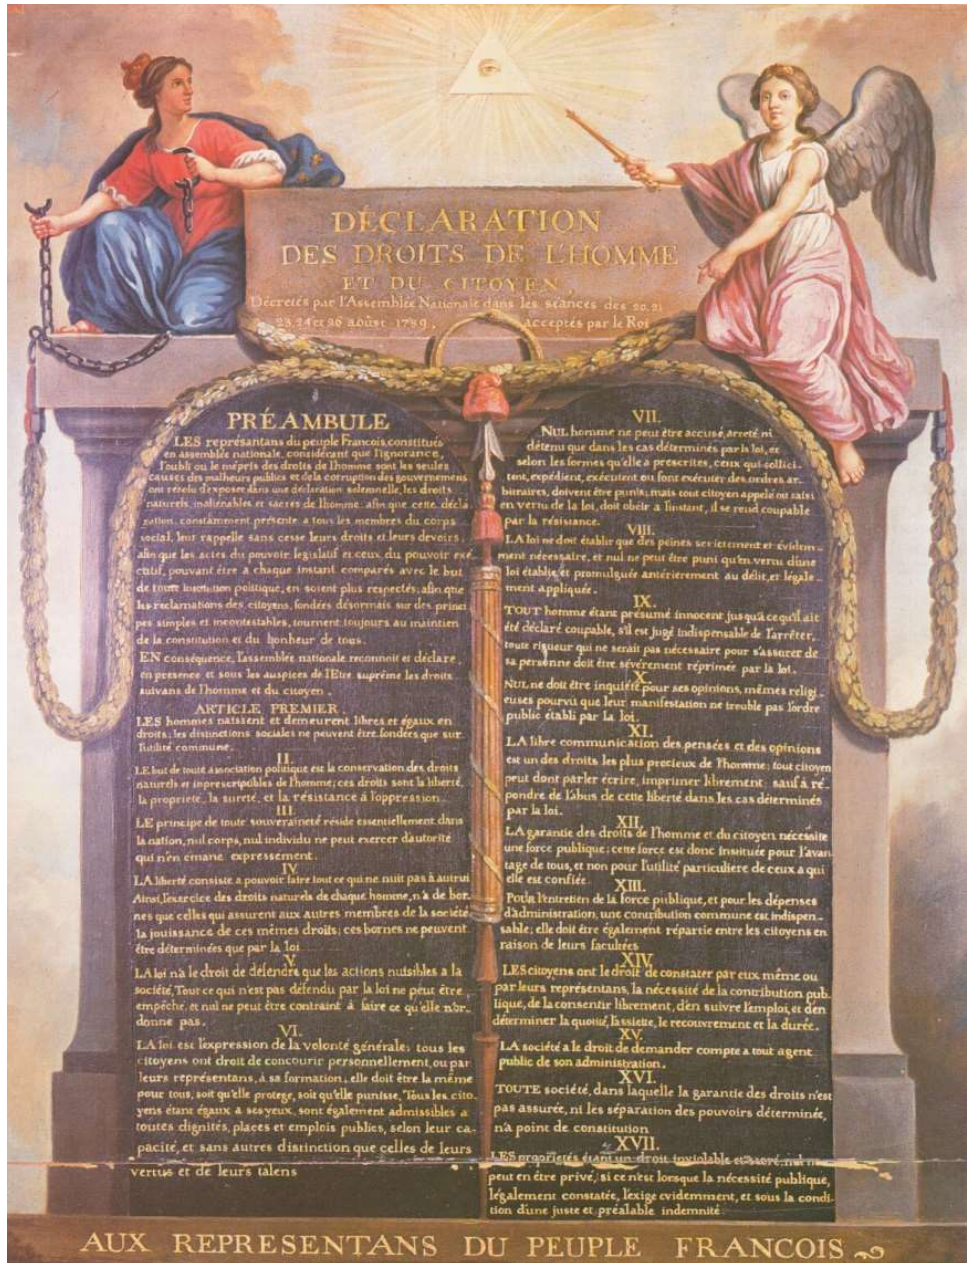 DÉCLARATION
DES DROITS DE L'HOMME
ET DU CITOYEN,
Décretés par l'Assemblée Nationale dans les séances des 20, 21
23, 24 et 26 aoûst 1789, acceptés par le Roi
PRÉAMBULE
LES représantans du peuple Francois, constitués
en assemblée nationale, considérant que l'ignorance,
l'oubli ou le mépris des droits de l'homme sont les seules
causes des malheurs publics et de la corruption des gouvernemens
ont résolu d'exposer dans une déclaration solemnelle, les droits
naturels, inaliénables et sacrés de l'homme; afin que cette décla
ration, constamment présente a tous les membres du corps
social, leur rappelle sans cesse leurs droits et leurs devoirs,
afin que les actes du pouvoir législatif et ceux du pouvoir exé
cutif, pouvant être a chaque instant comparés avec le but
de toute institution politique, en soient plus respectés; afin que
les reclamations des citoyens, fondées désormais sur des princi
pes simples et incontestables, tournent toujours au maintien
de la constitution et du bonheur de tous.
EN conséquence, l'assemblée nationale reconnoit et déclare,
en presence et sous les auspices de l'Etre suprême les droits
suivans de l'homme et du citoyen.
ARTICLE PREMIER.
LES hommes naissent et demeurent libres et égaux en
droits; les distinctions sociales ne peuvent être fondées que sur
l'utilité commune.
II.
LE but de toute association politique est la conservation des droits
naturels et inprescriptibles de l'homme; ces droits sont la liberté,
la propriete, la sureté, et la résistance à l'oppression.
III.
LE principe de toute souveraineté réside essentiellement dans
la nation, nul corps, nul individu ne peut exercer d'autorité
qui n'en émane expressement.
IV.
LA liberté consiste a pouvoir faire tout ce qui ne nuit pas à autrui
Ainsi, l'exercice des droits naturels de chaque homme, n'a de bor-
nes que celles qui assurent aux autres membres de la société
la jouissance de ces mêmes droits; ces bornes ne peuvent
être déterminées que par la loi
V.
LA loi n'a le droit de défendre que les actions nuisibles a la
société. Tout ce qui n'est pas défendu par la loi ne peut être
empêché, et nul ne peut être contraint à faire ce qu'elle n'or-
donne pas.
VI.
LA loi est l'expression de la volonté générale; tous les
citoyens ont droit de concourir personnellement, ou par
leurs représentans, à sa formation; elle doit être la même
pour tous, soit qu'elle protege, soit qu'elle punisse. Tous les cito
yens étant égaux à ses yeux, sont également admissibles a
toutes dignités, places et emplois publics, selon leur ca-
pacité, et sans autres distinction que celles de leurs
vertus et de leurs talens
VII.
NUL homme ne peut être accusé, arreté ni
détenu que dans les cas déterminés par la loi, et
selon les formes qu'elle a prescrites, ceux qui sollici-
tent, expédient, exécutent ou font exécuter des ordres ar-
bitraires, doivent être punis; mais tout citoyen appelé ou saisi
en vertu de la loi, doit obéir a l'instant, il se rend coupable
par la résistance.
VIII.
LA loi ne doit établir que des peines strictement et évidem-
ment nécessaire, et nul ne peut être puni qu'en vertu d'une
loi établie et promulguée antérierement au délit, et légale-
ment appliquée.
IX.
TOUT homme étant présumé innocent jusqu'a ce qu'il ait
été déclaré coupable, s'il est jugé indispensable de l'arrêter,
toute rigueur qui ne serait pas nécessaire pour s'assurer de
sa personne doit être sévèrement réprimée par la loi.
X.
NUL ne doit être inquiété pour ses opinions, mêmes relig-
euses pourvu que leur manifestation ne trouble pas l'ordre
public établi par la loi.
XI.
LA libre communication des pensées et des opinions
est un des droits les plus precieux de l'homme; tout citoyen
peut donc parler écrire, imprimer librement; sauf à ré-
pondre de l'abus de cette liberté dans les cas déterminés
par la loi.
XII.
LA garantie des droits de l'homme et du citoyen nécessite
une force publique; cette force est donc instituée pour l'avan
tage de tous, et non pour l'utilité particuliere de ceux a qui
elle est confiée.
XIII.
POUR l'entretien de la force publique, et pour les dépenses
d'administration, une contribution commune est indispen-
sable; elle doit être également répartie entre les citoyens en
raison de leurs facultées
XIV.
LES citoyens ont le droit de constater par eux même ou
par leurs représentans, la nécessité de la contribution pub-
lique, de la consentir librement, d'en suivre l'emploi, et d'en
déterminer la quotité, l'assiette, le recouvrement et la durée.
XV.
LA société a le droit de demander compte a tout agent
public de son administration.
XVI.
TOUTE société, dans laquelle la garantie des droits n'est
pas assurée, ni les séparation des pouvoirs déterminée,
n'a point de constitution
XVII.
LES propriétés étant un droit inviolable et sacré, nul ne
peut en être privé, si ce n'est lorsque la nécessité publique,
légalement constatée, l'exige evidemment, et sous la condi-
tion d'une juste et préalable indemnité.
AUX REPRESENTANS DU PEUPLE FRANCOIS